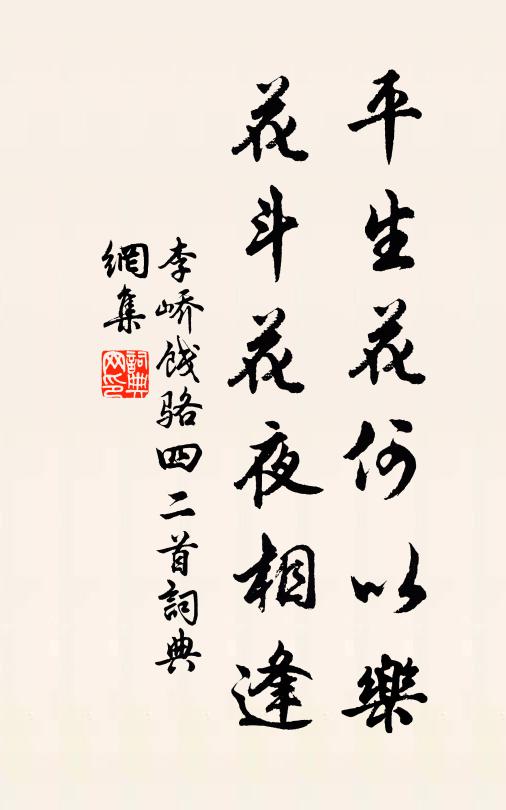 平生花何以樂
花斗花夜相逢
李嶠餞駱四二首詞典
網集
詞典
网印